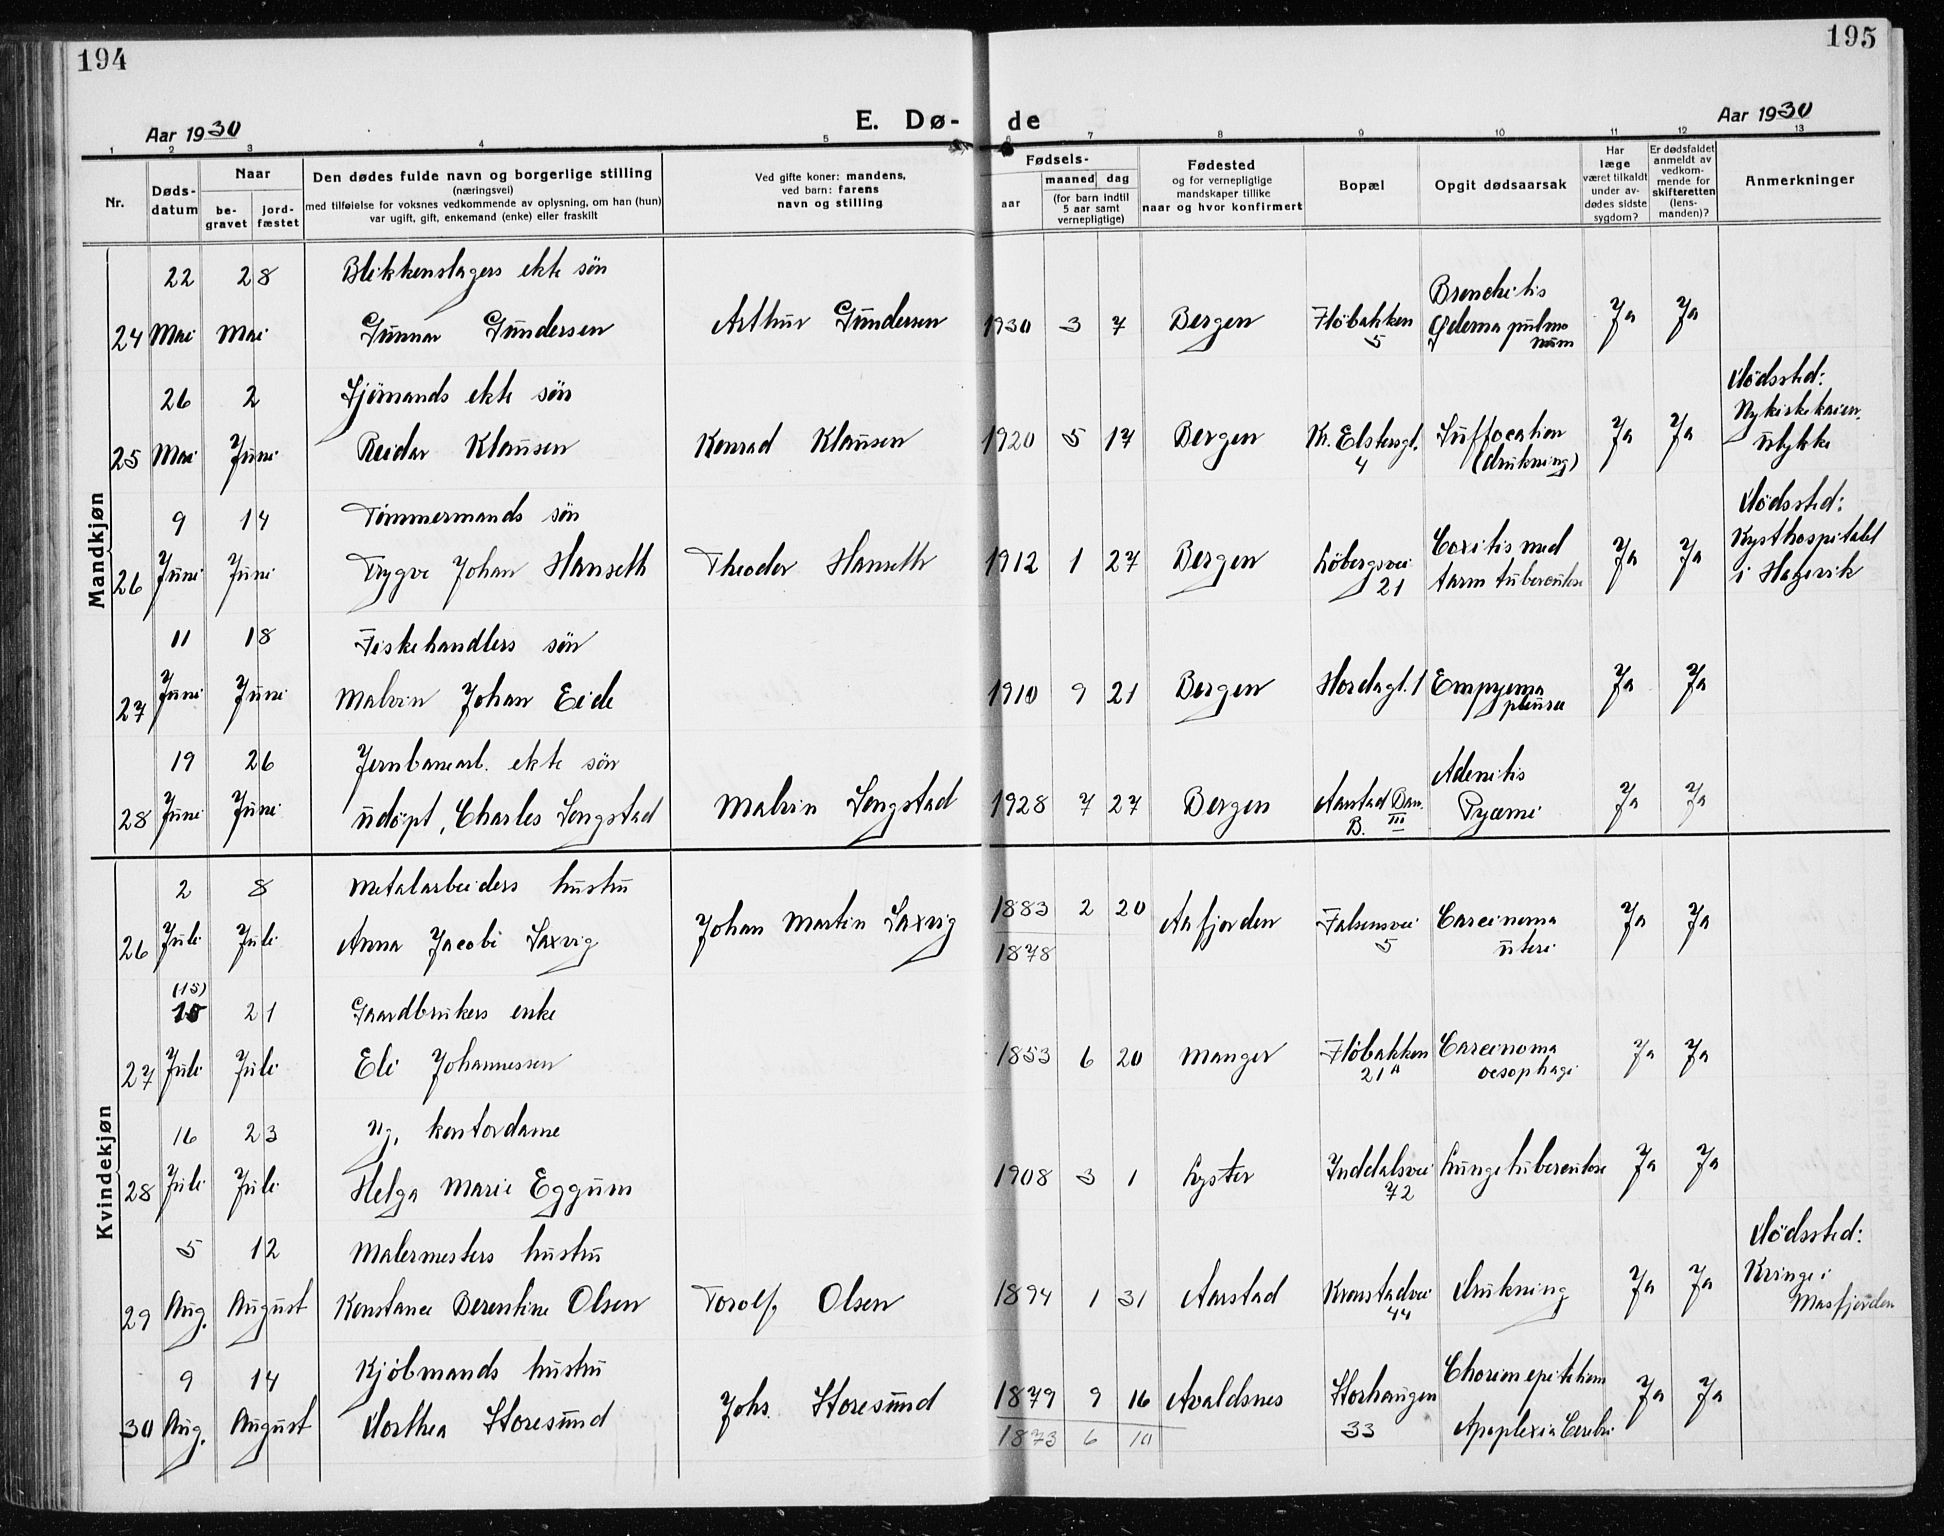 194
195
Aar 1930
E. Dø- de
Aar 1930
1 2 3 4 5 6 7 8 9 10 11 12 13
Nr.
Døds-
datum
Naar
be-
gravet
jord-
fæstet
Den dødes fulde navn og borgerlige stilling
(næringsvei)
med tilføielse for voksnes vedkommende av oplysning, om han (hun)
var ugift, gift, enkemand (enke) eller fraskilt
Ved gifte koner: mandens,
ved barn: farens
navn og stilling
Fødsels-
aar
maaned dag
(for barn indtil
5 aar samt
vernepligtige)
Fødested
og for vernepligtige
mandskaper tillike
naar og hvor konfirmert
Bopæl
Opgit dødsaarsak
Har
læge
været tilkaldt
under av-
dødes sidste
sygdom?
Er dødsfaldet
anmeldt av
vedkom-
mende for
skifteretten
(lens-
manden)?
Anmerkninger
Mandkjøn
22 28 Blikkenslagers ekte søn Bronchitis
24 Mai Mai Gunnar Gundersen Arthur Gundersen 1930 3 7 Bergen Fløbakken Ødema pulmo Ja Ja
5 num
26 2 Sjømands ekte søn Dødssted:
Nykirkekaien.
25 Mai Juni Reidar Klausen Konrad Klausen 1920 5 17 Bergen Kr. Elstersgt. Suffocation Ja Ja ulykke
4 (drukning)
9 14 Tømmermands søn Dødssted:
Kysthospitalet
26 Juni Juni Trygve Johan Hanseth Theodor Hanseth 1912 1 27 Bergen Løbergsvei Coxitis med Ja Ja i Hagevik
21 tarm tuberculose
11 18 Fiskehandlers søn
27 Juni Juni Malvin Johan Eide 1910 9 21 Bergen Hordagt. 1 Empyema Ja Ja
pleurae
19 26 Jernbanearb. ekte søn Adenitis
28 Juni Juni udøpt, Charles Longstad Malvin Longstad 1928 7 27 Bergen Aarstad Bar. Pyæmi Ja Ja
B. III
Kvindekjøn
2 8 Metalarbeiders hustru
26 Juli Juli Anna Jacobi Saxvig Johan Martin Saxvig 1883 2 20 Aafjorden Falsensvei Carcinoma Ja Ja
1878 5 uteri
(15)
15 21 Gaardbrukers enke
27 Juli Juli Eli Johannessen 1853 6 20 Manger Fløbakken Carcinoma Ja Ja
21 A oesophagi
16 23 Ug. kontordame
28 Juli Juli Helga Marie Eggum 1908 3 1 Lyster Inddalsvei Lungetuberculose Ja Ja
72
5 12 Malermesters hustru Dødssted:
29 Aug. August Konstance Berentine Olsen Torolf Olsen 1894 1 31 Aarstad Kronstadvei Drukning Ja Ja Kringe i
44 Masfjorden
9 14 Kjøbmands hustru
30 Aug. August Dorthea Storesund Johs. Storesund 1879 9 16 Avaldsnes Storhaugen Chorionepitheliom Ja Ja
1873 6 10 33 Apoplexia Cerebri